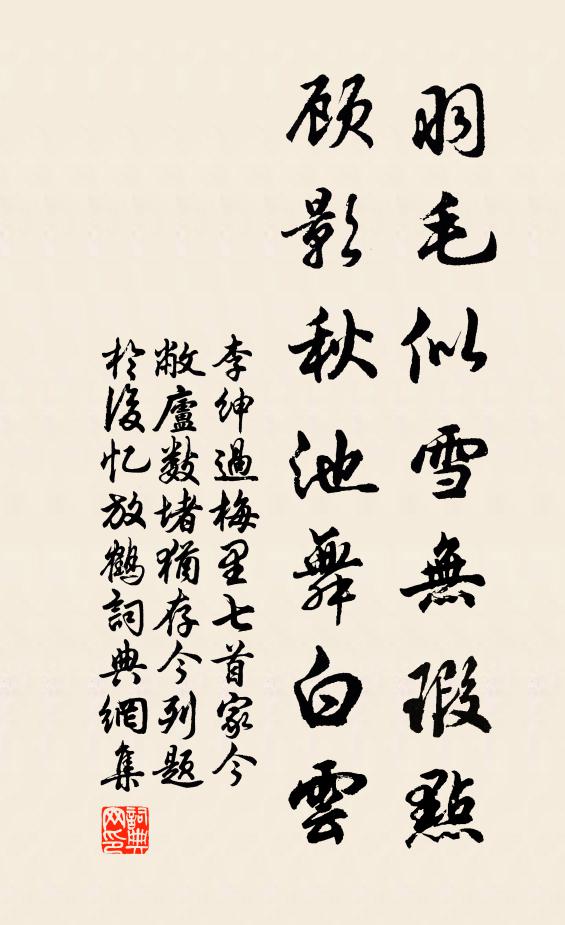 羽毛似雪無瑕點
顾影秋池舞白雲
李紳過梅里七首家今
敝廬數堵猶存今列題
於後忆放鶴詞典網集
詞典网印